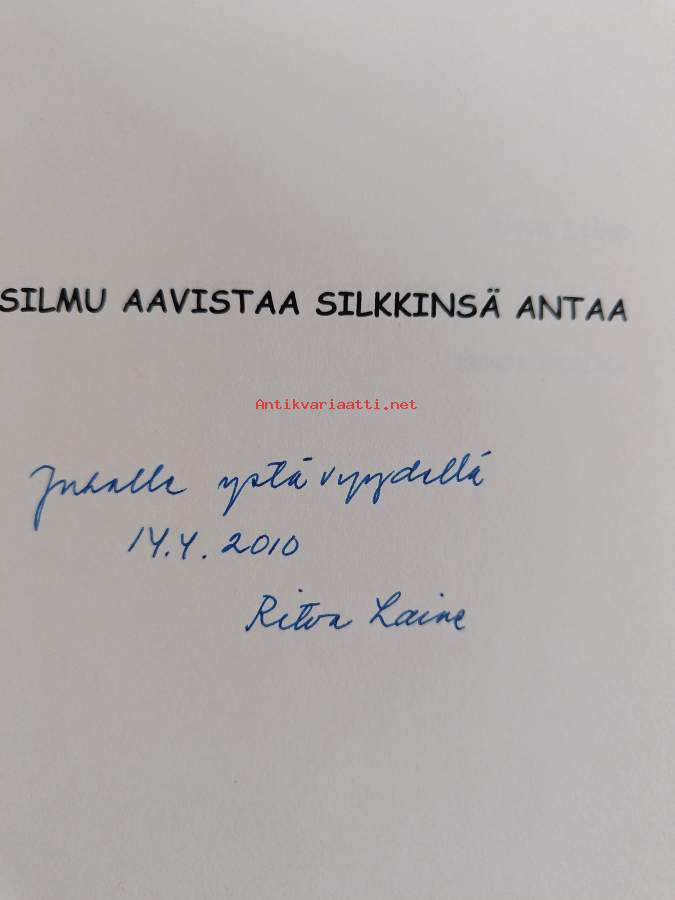 SILMU AAVISTAA SILKKINSÄ ANTAA
Antikvariaatti.net
Juhalle ystävyydellä
14.4.2010
Ritva Laine